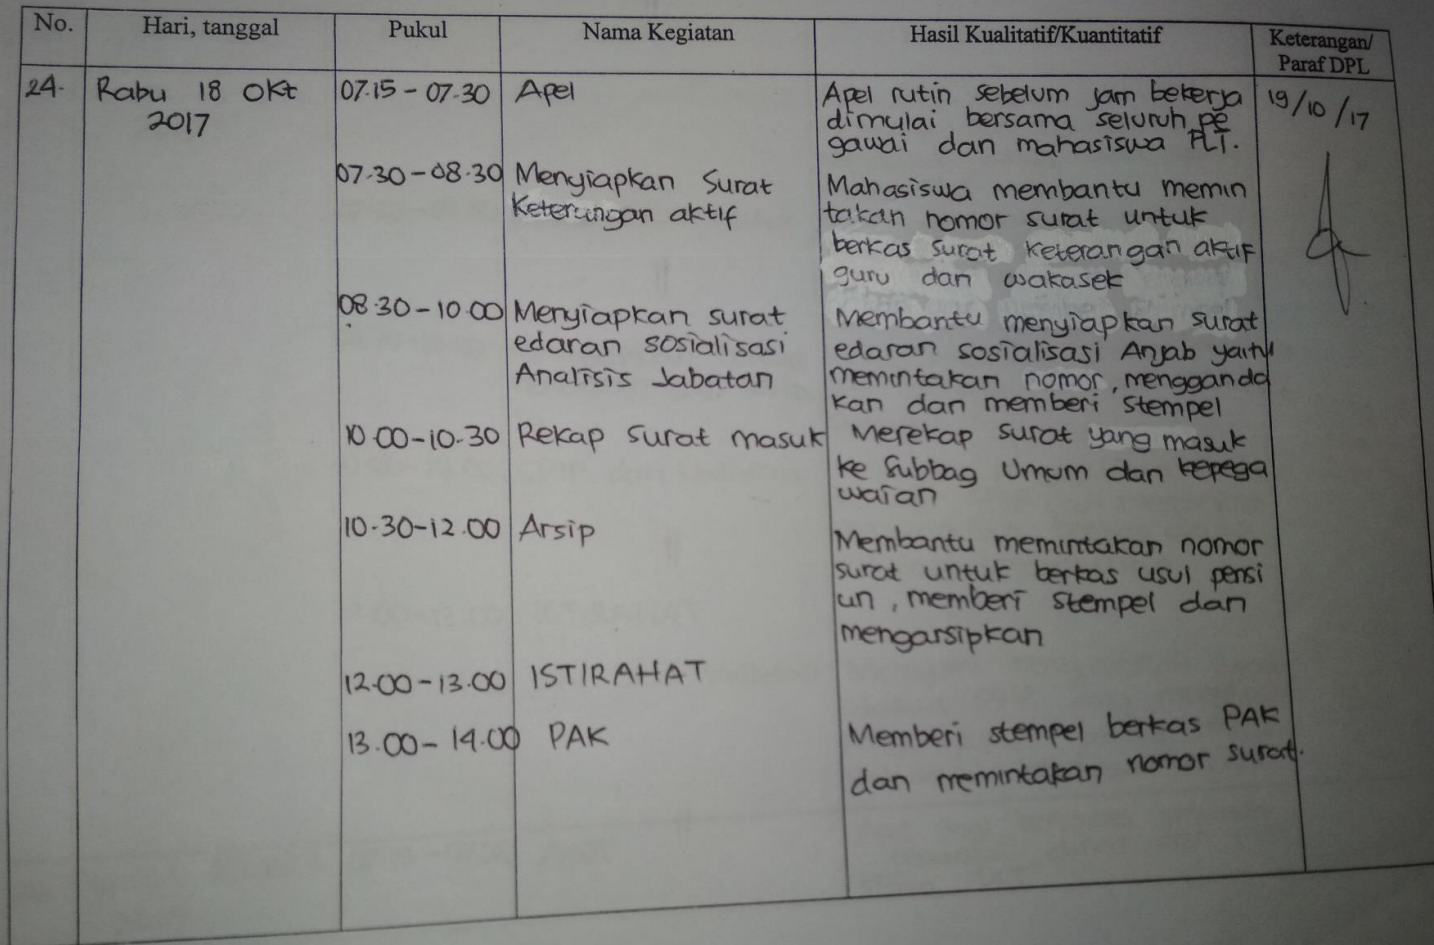 No. Hari, tanggal Pukul Nama Kegiatan Hasil Kualitatif/Kuantitatif Keterangan/
Paraf DPL
24. Rabu 18 Okt 07.15 - 07.30 Apel Apel rutin sebelum jam bekerja 19/10/17
2017 dimulai bersama seluruh pe
gawai dan mahasiswa PLT.
07.30 - 08.30 Menyiapkan Surat Mahasiswa membantu memin
Keterangan aktif takan nomor surat untuk
berkas surat keterangan aktif
guru dan wakasek
08.30 - 10.00 Menyiapkan surat Membantu menyiapkan surat
edaran sosialisasi edaran sosialisasi Anjab yaitu
Analisis Jabatan memintakan nomor, mengganda
kan dan memberi stempel
10.00 - 10.30 Rekap surat masuk Merekap surat yang masuk
ke Subbag Umum dan kepega
waian
10.30 - 12.00 Arsip Membantu memintakan nomor
surat untuk berkas usul pensi
un, memberi stempel dan
mengarsipkan
12.00 - 13.00 ISTIRAHAT
13.00 - 14.00 PAK Memberi stempel berkas PAK
dan memintakan nomor surat.